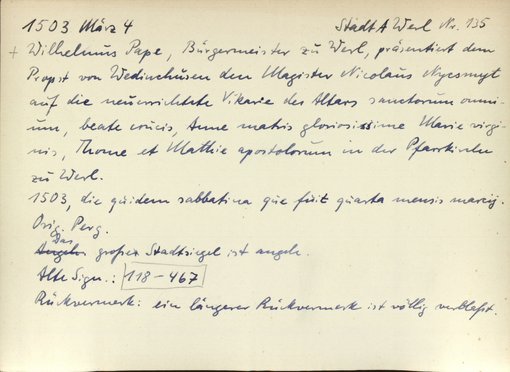 1503 März 4 StadtA Werl Nr. 135
+ Wilhelmus Pape, Bürgermeister zu Werl, präsentiert dem
Propst von Wedinchusen den Magister Nicolaus Nyesmyt
auf die neuerrichtete Vikarie des Altars sanctorum omni-
um, beate crucis, Anne matris gloriosissime Marie virgi-
nis, Thome et Mathie apostolorum in der Pfarrkirche
zu Werl.
1503, die quidem sabbatina que fuit quarta mensis marcij.
Orig. Perg.
Das großes Stadtsiegel ist angeh.
Alte Sign.: 118-467
Rückvermerk: ein längerer Rückvermerk ist völlig verblaßt.